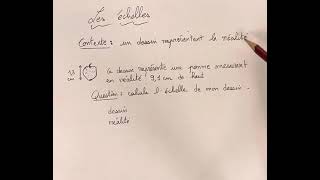 Les échelles
Contexte : un dessin représentant la réalité
1,3 cm
Ce dessin représente une pomme mesurant
en réalité 9,1 cm de haut
Question : calcule l'échelle de mon dessin.
dessin
réalité